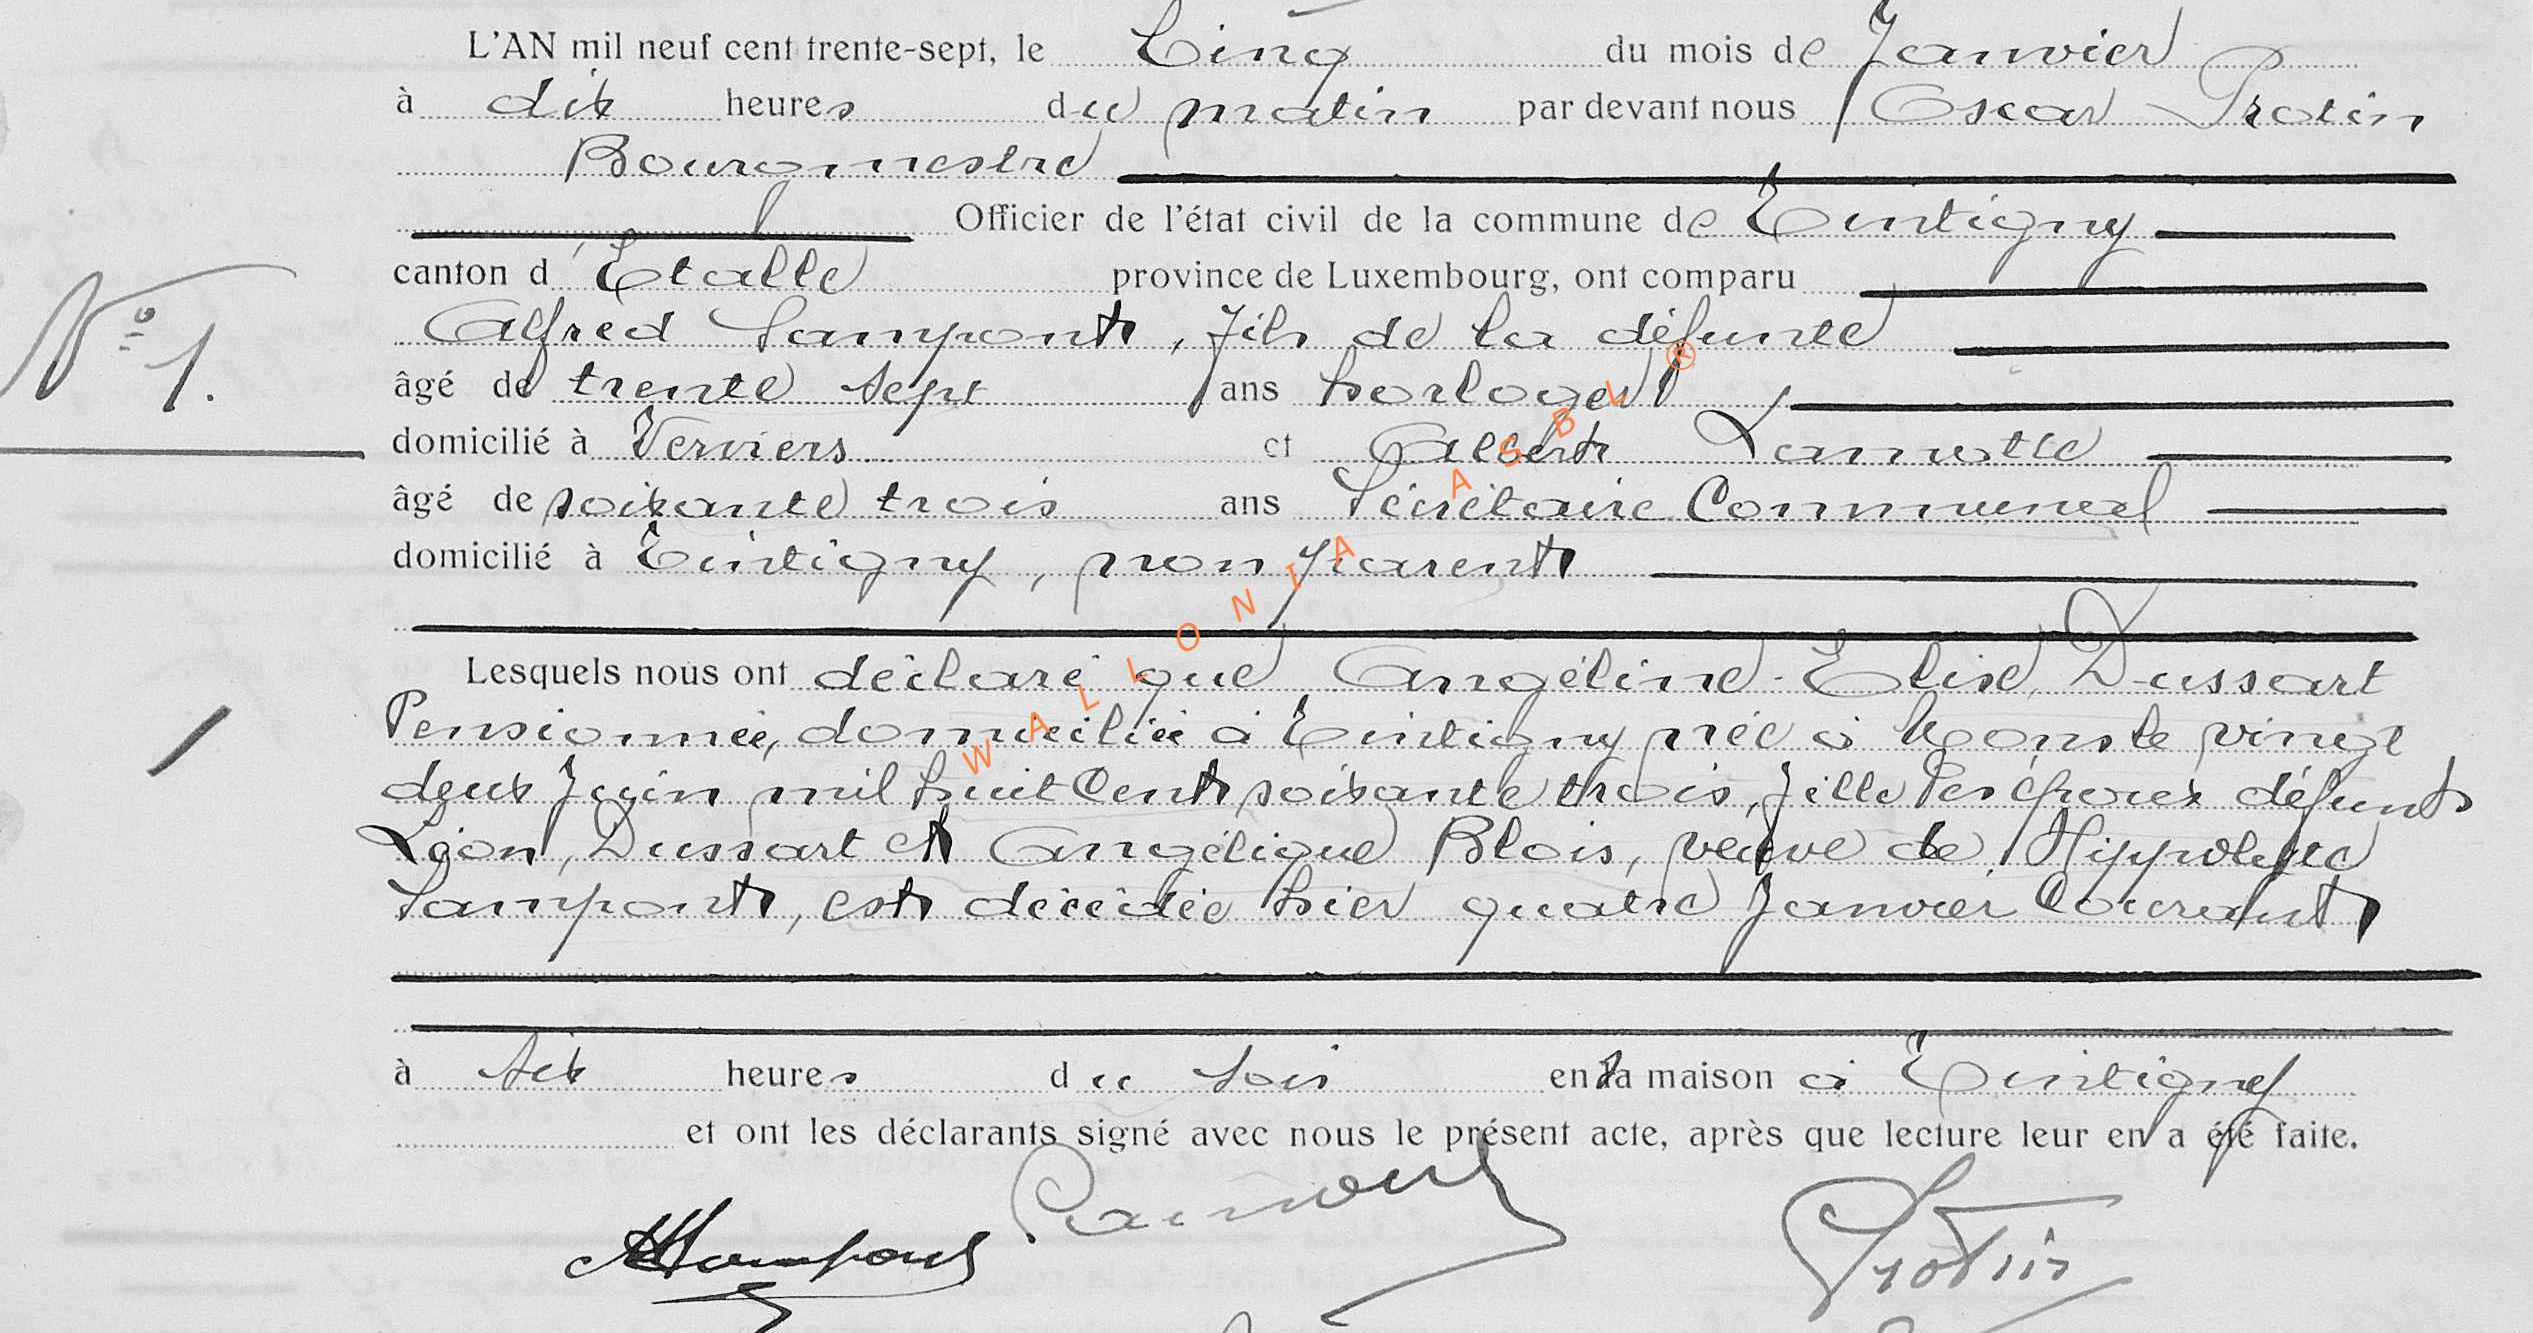 L'AN mil neuf cent trente-sept, le Cinq du mois de Janvier
à dix heures du matin par devant nous Oscar Protin
Bourgmestre
Officier de l'état civil de la commune de Tintigny
canton d'Etalle province de Luxembourg, ont comparu
Alfred Sampont, fils de la défunte
N° 1.
âgé de trente sept ans horloger
domicilié à Verviers et Albert Lamotte
âgé de soixante trois ans Secrétaire Communal
domicilié à Tintigny, non parent
Lesquels nous ont déclaré que Angéline-Elise Dussart
Pensionnée, domiciliée à Tintigny née à Mons le vingt
deux Juin mil huit Cent soixante trois, fille des époux défunts
Léon, Dussart et Angélique Blois, veuve de Hippolyte
Sampont, est décédée hier quatre Janvier Courant
à six heures du soir en sa maison à Tintigny
et ont les déclarants signé avec nous le présent acte, après que lecture leur en a été faite.
ASampont
Protin
WALLONIA ASBL ®